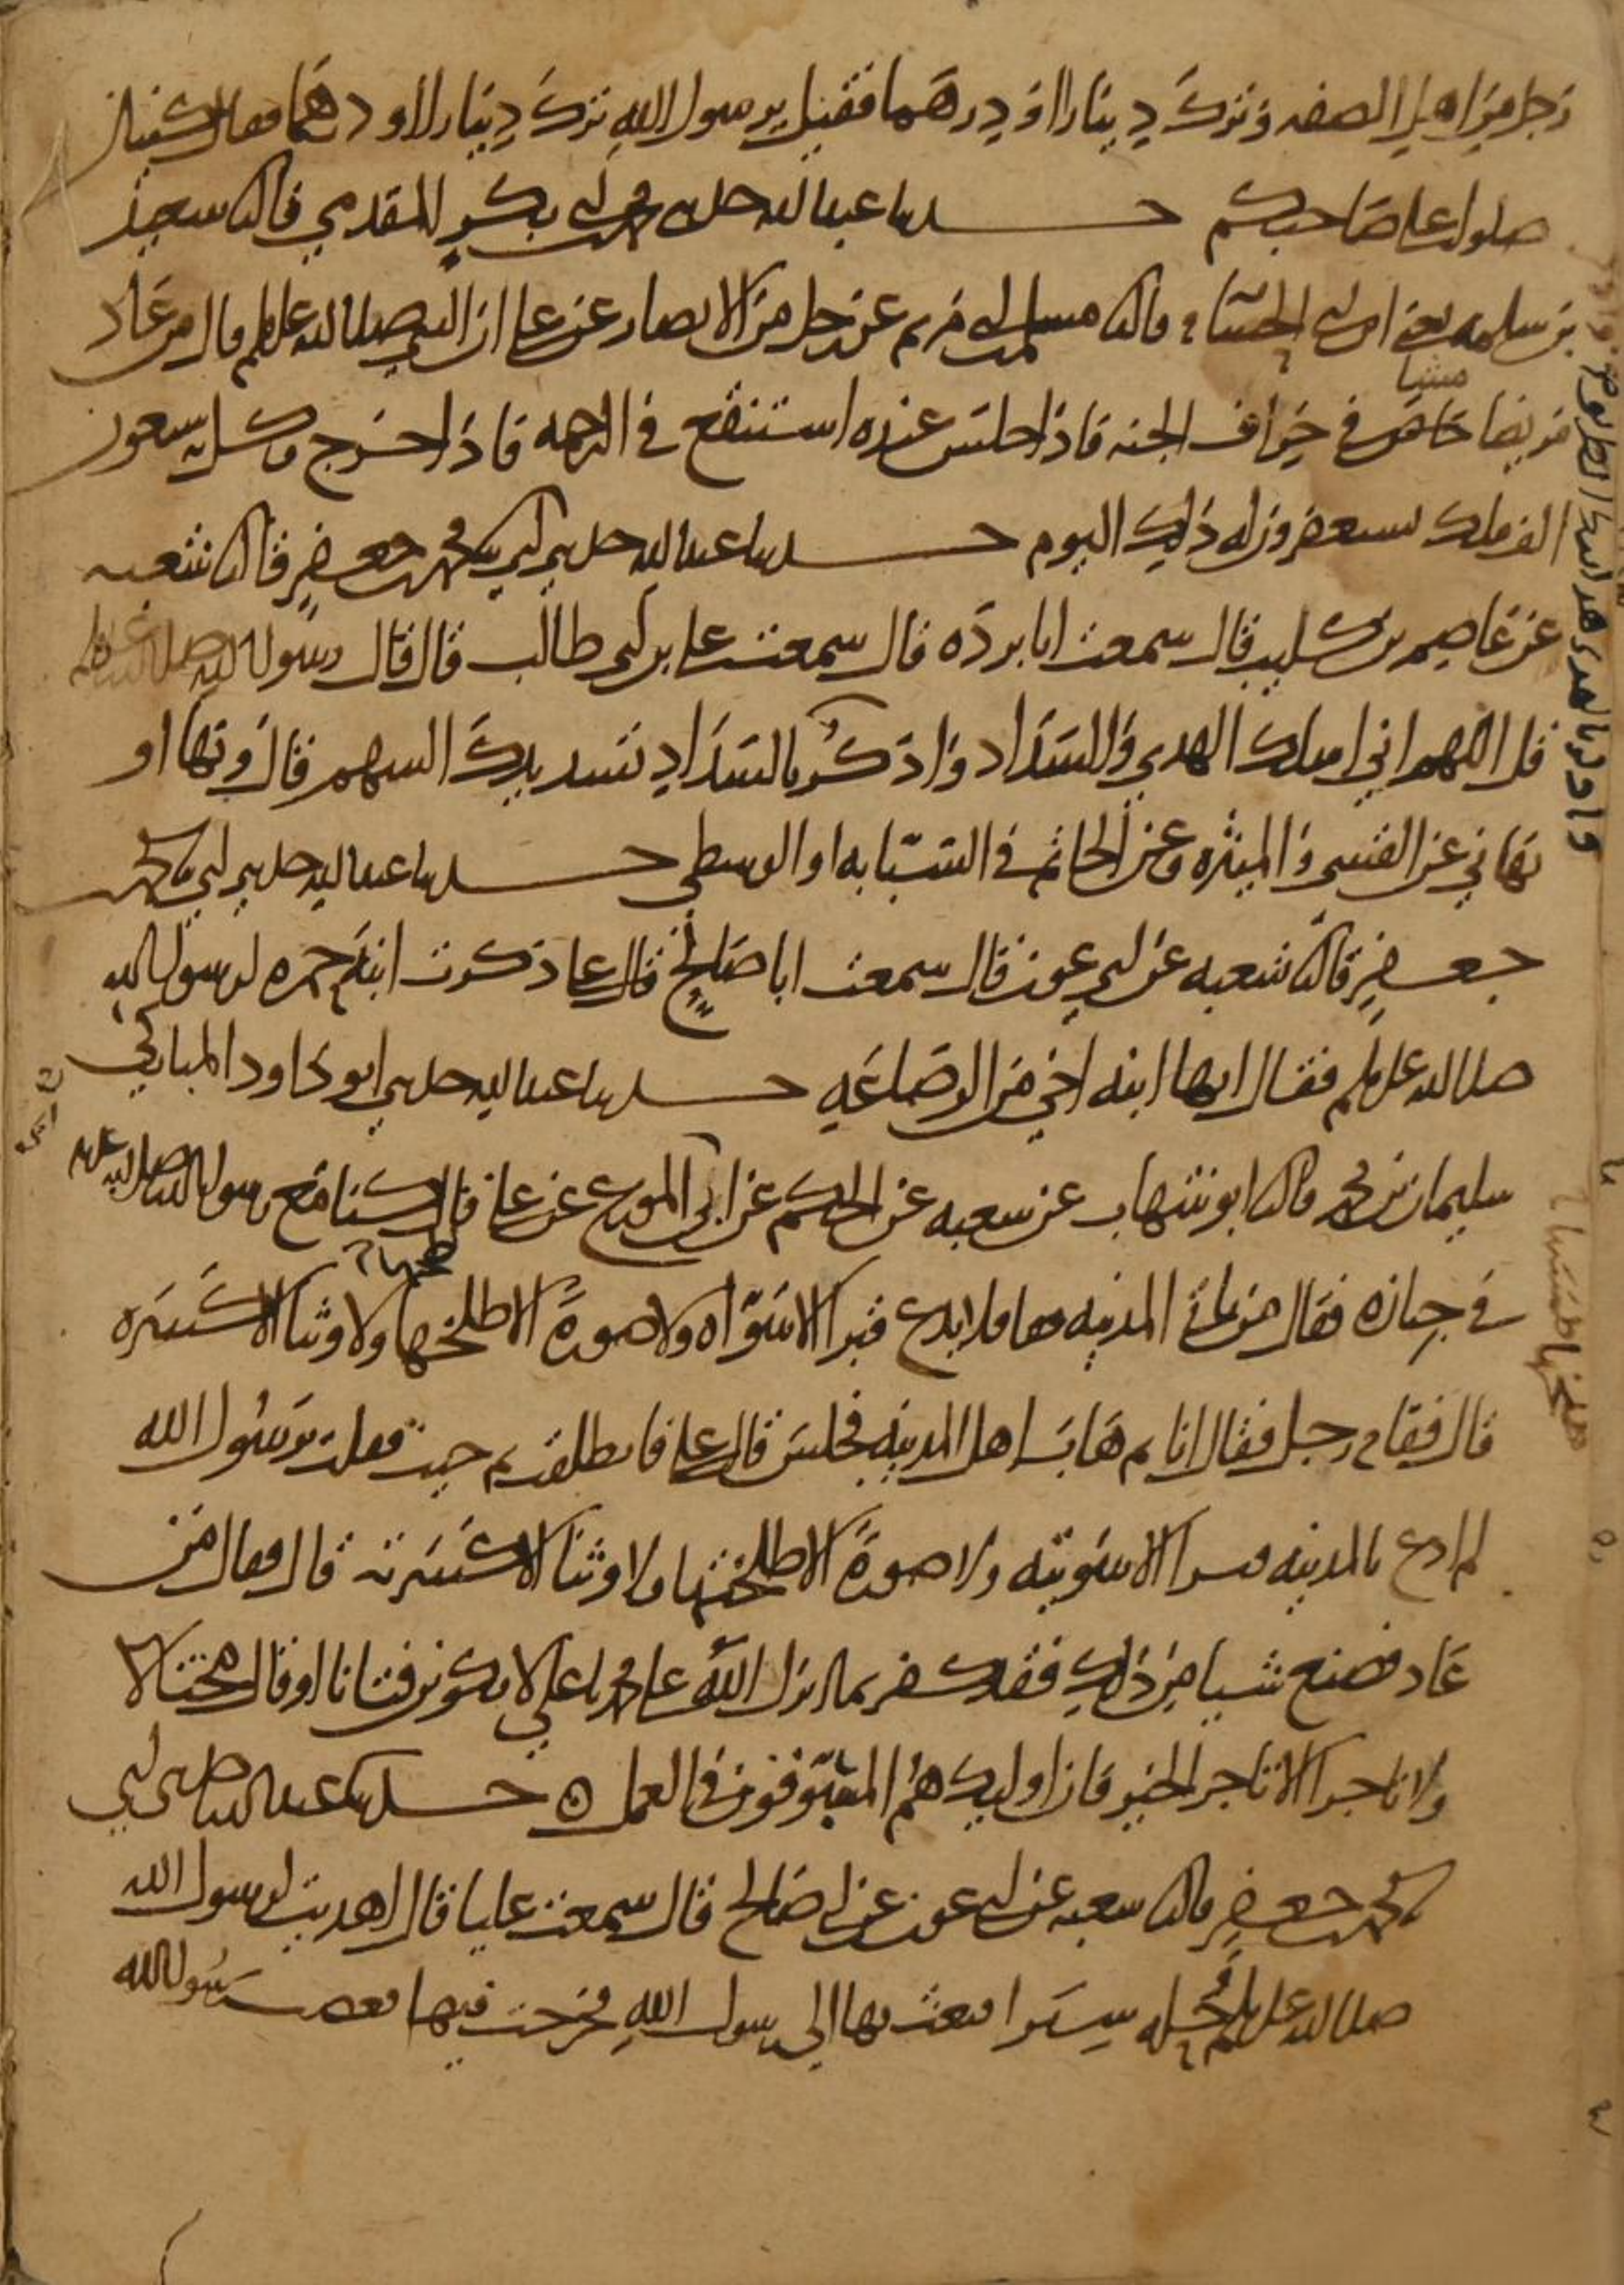 رجل من اهل الصفه وترك دينارا او درهما فقيل يرسول الله ترك دينارا او درهما فقال كيتان
صلوا على صاحبكم حدثنا عبدالله حدثني محمد بن ابي بكر المقدمي قال ثنا سعيد
بن سلمه يعني ابن ابي الحسام قال ثنا مسلم بن ابي مريم عن رجل من الانصار عن علي ان النبي صلى الله عليه وسلم قال من عاد
مريضا مشيا في خراف الجنه فاذا جلس عنده استنقع في الرحمه فاذا خرج وكل به سبعون
الف ملك يستغفرون له ذلك اليوم حدثنا عبدالله حدثني ابي ثنا محمد بن جعفر قال ثنا شعبه
عن عاصم بن كليب قال سمعت ابا برده قال سمعت علي بن ابي طالب قال قال رسول الله صلى الله عليه وسلم
قل اللهم اني اسلك الهدي والسداد واذكر بالسداد تسديدك السهم قال ونها او
نهاني عن القسي والميثره وعن الخاتم في السبابه او الوسطي حدثنا عبدالله حدثني ابي ثنا محمد بن
جعفر قال ثنا شعبه عن ابي عون قال سمعت ابا صالح قال علي ذكرت ابنة حمزه لرسول الله
صلى الله عليه وسلم فقال انها ابنه اخي من الرضاعه حدثنا عبدالله حدثني ابو داود المباركي
سليمان بن محمد قال ثنا ابو شهاب عن شعبه عن الحكم عن ابي المورع عن علي قال كنا مع رسول الله صلى الله عليه
في جنازه فقال من ياتي المدينه فلا يدع قبرا الا سواه ولا صورة الا طلخها ولا وثنا الا كسره
قال فقام رجل فقال انا ثم هاب اهل المدينه فجلس قال علي فانطلقت ثم جيت فقلت يرسول الله
لم ادع بالمدينه قبرا الا سويته ولا صورة الا طلختها ولا وثنا الا كسرته قال فقال من
عاد فصنع شيا من ذلك فقد كفر بما انزل الله على محمد يا علي لا تكونن فتانا او قال مختالا
ولا تاجرا الا تاجر الخير فان اوليك هم المسوفون في العمل حدثنا عبدالله حدثني ابي
ثنا محمد بن جعفر قال ثنا شعبه عن ابي عون عن ابي صالح قال سمعت عليا قال اهديت لرسول الله
صلى الله عليه وسلم حله سيرا فبعث بها الي رسول الله فخرجت فيها فغضب رسول الله